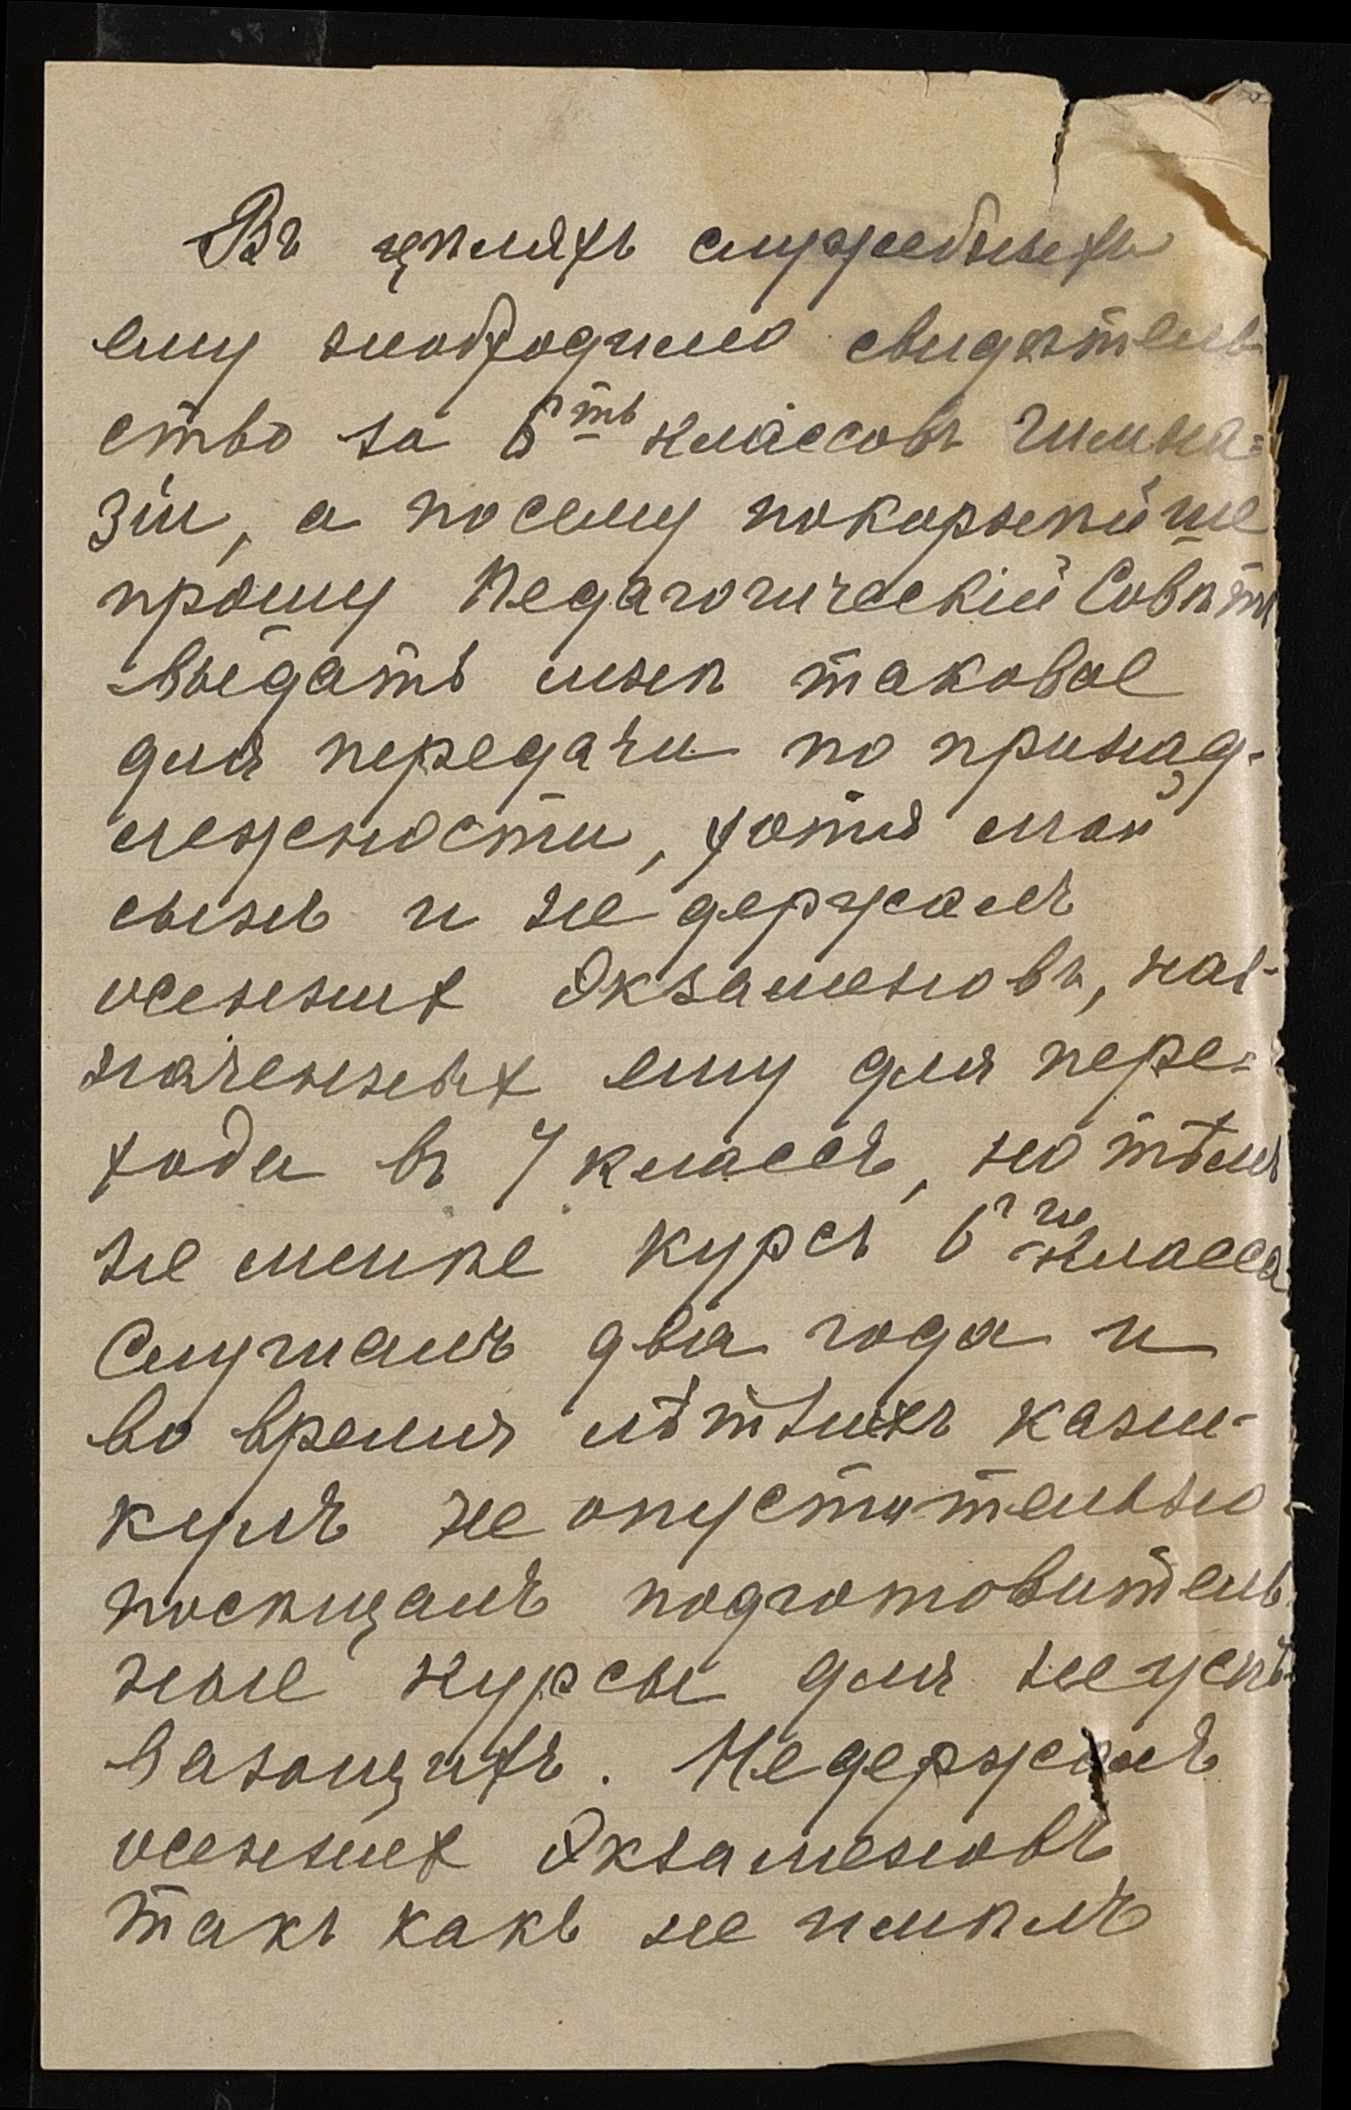 Въ цѣляхъ служебныхъ
ему необходимо свидѣтель-
ство за 6ть классовъ гимна=
зіи, а посему покорнѣйше
прошу Педагогическій Совѣтъ
выдать мнѣ таковое
для передачи по принад-
лежности, хотя мой
сынъ и не держалъ
осенних экзаменовъ, наз-
наченных ему для пере=
хода въ 7 классъ, но тѣмъ
не менѣе курсъ 6го класса
слушалъ два года и
во время лѣтнихъ кани-
кулъ не опустительно
посѣщалъ подготовитель-
ные курсы для неуспѣ-
вающихъ. Не держалъ
осенних экзаменовъ
такъ какъ не имѣлъ